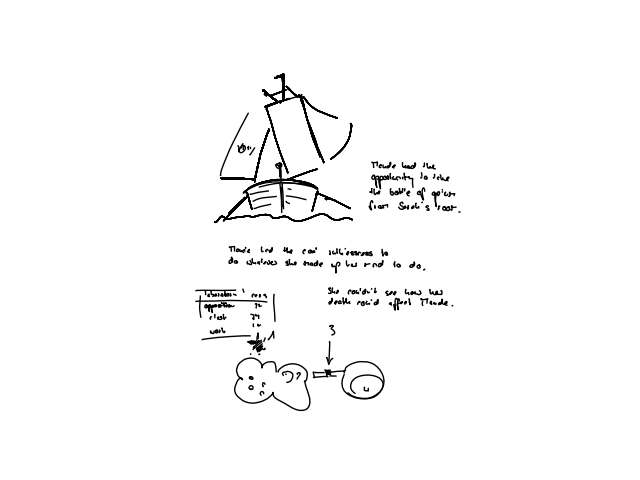 Maude had the
opportunity to take
the bottle of poison
from Sarah's room.
Maude had the cool ruthlessness to
do whatever she made up her mind to do.
She couldn't see how her
death could affect Maude.
opposition
work
3